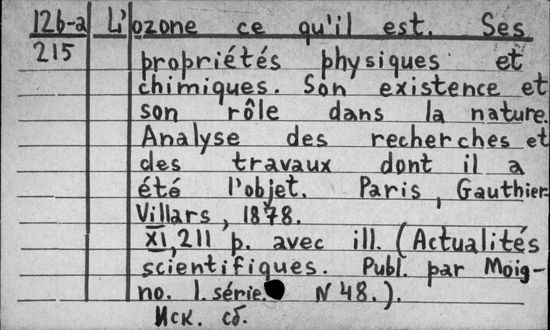 12b-a L'ozone ce qu'il est. Ses
215 propriétés physiques et
chimiques. Son existence et
son rôle dans la nature.
Analyse des recherches et
des travaux dont il a
été l'objet. Paris, Gauthier-
Villars, 1878.
XI, 211 p. avec ill. (Actualités
scientifiques. Publ. par Moig-
no. 1. série. N 48.).
Иск. сб.